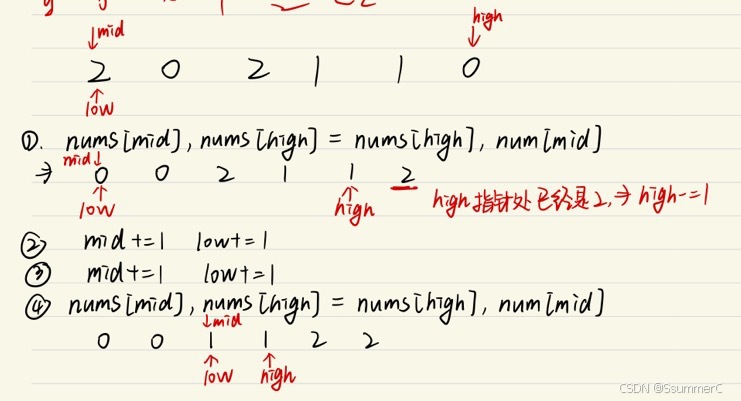 ↓mid high
↓
2 0 2 1 1 0
↑
low
①. nums[mid], nums[high] = nums[high], num[mid]
mid↓
⇒ 0 0 2 1 1 2
↑ ↑
low high high指针处已经是2,⇒ high-=1
② mid+=1 low+=1
③ mid+=1 low+=1
④ nums[mid], nums[high] = nums[high], num[mid]
↓mid
0 0 1 1 2 2
↑ ↑
low high
CSDN @SsummerC